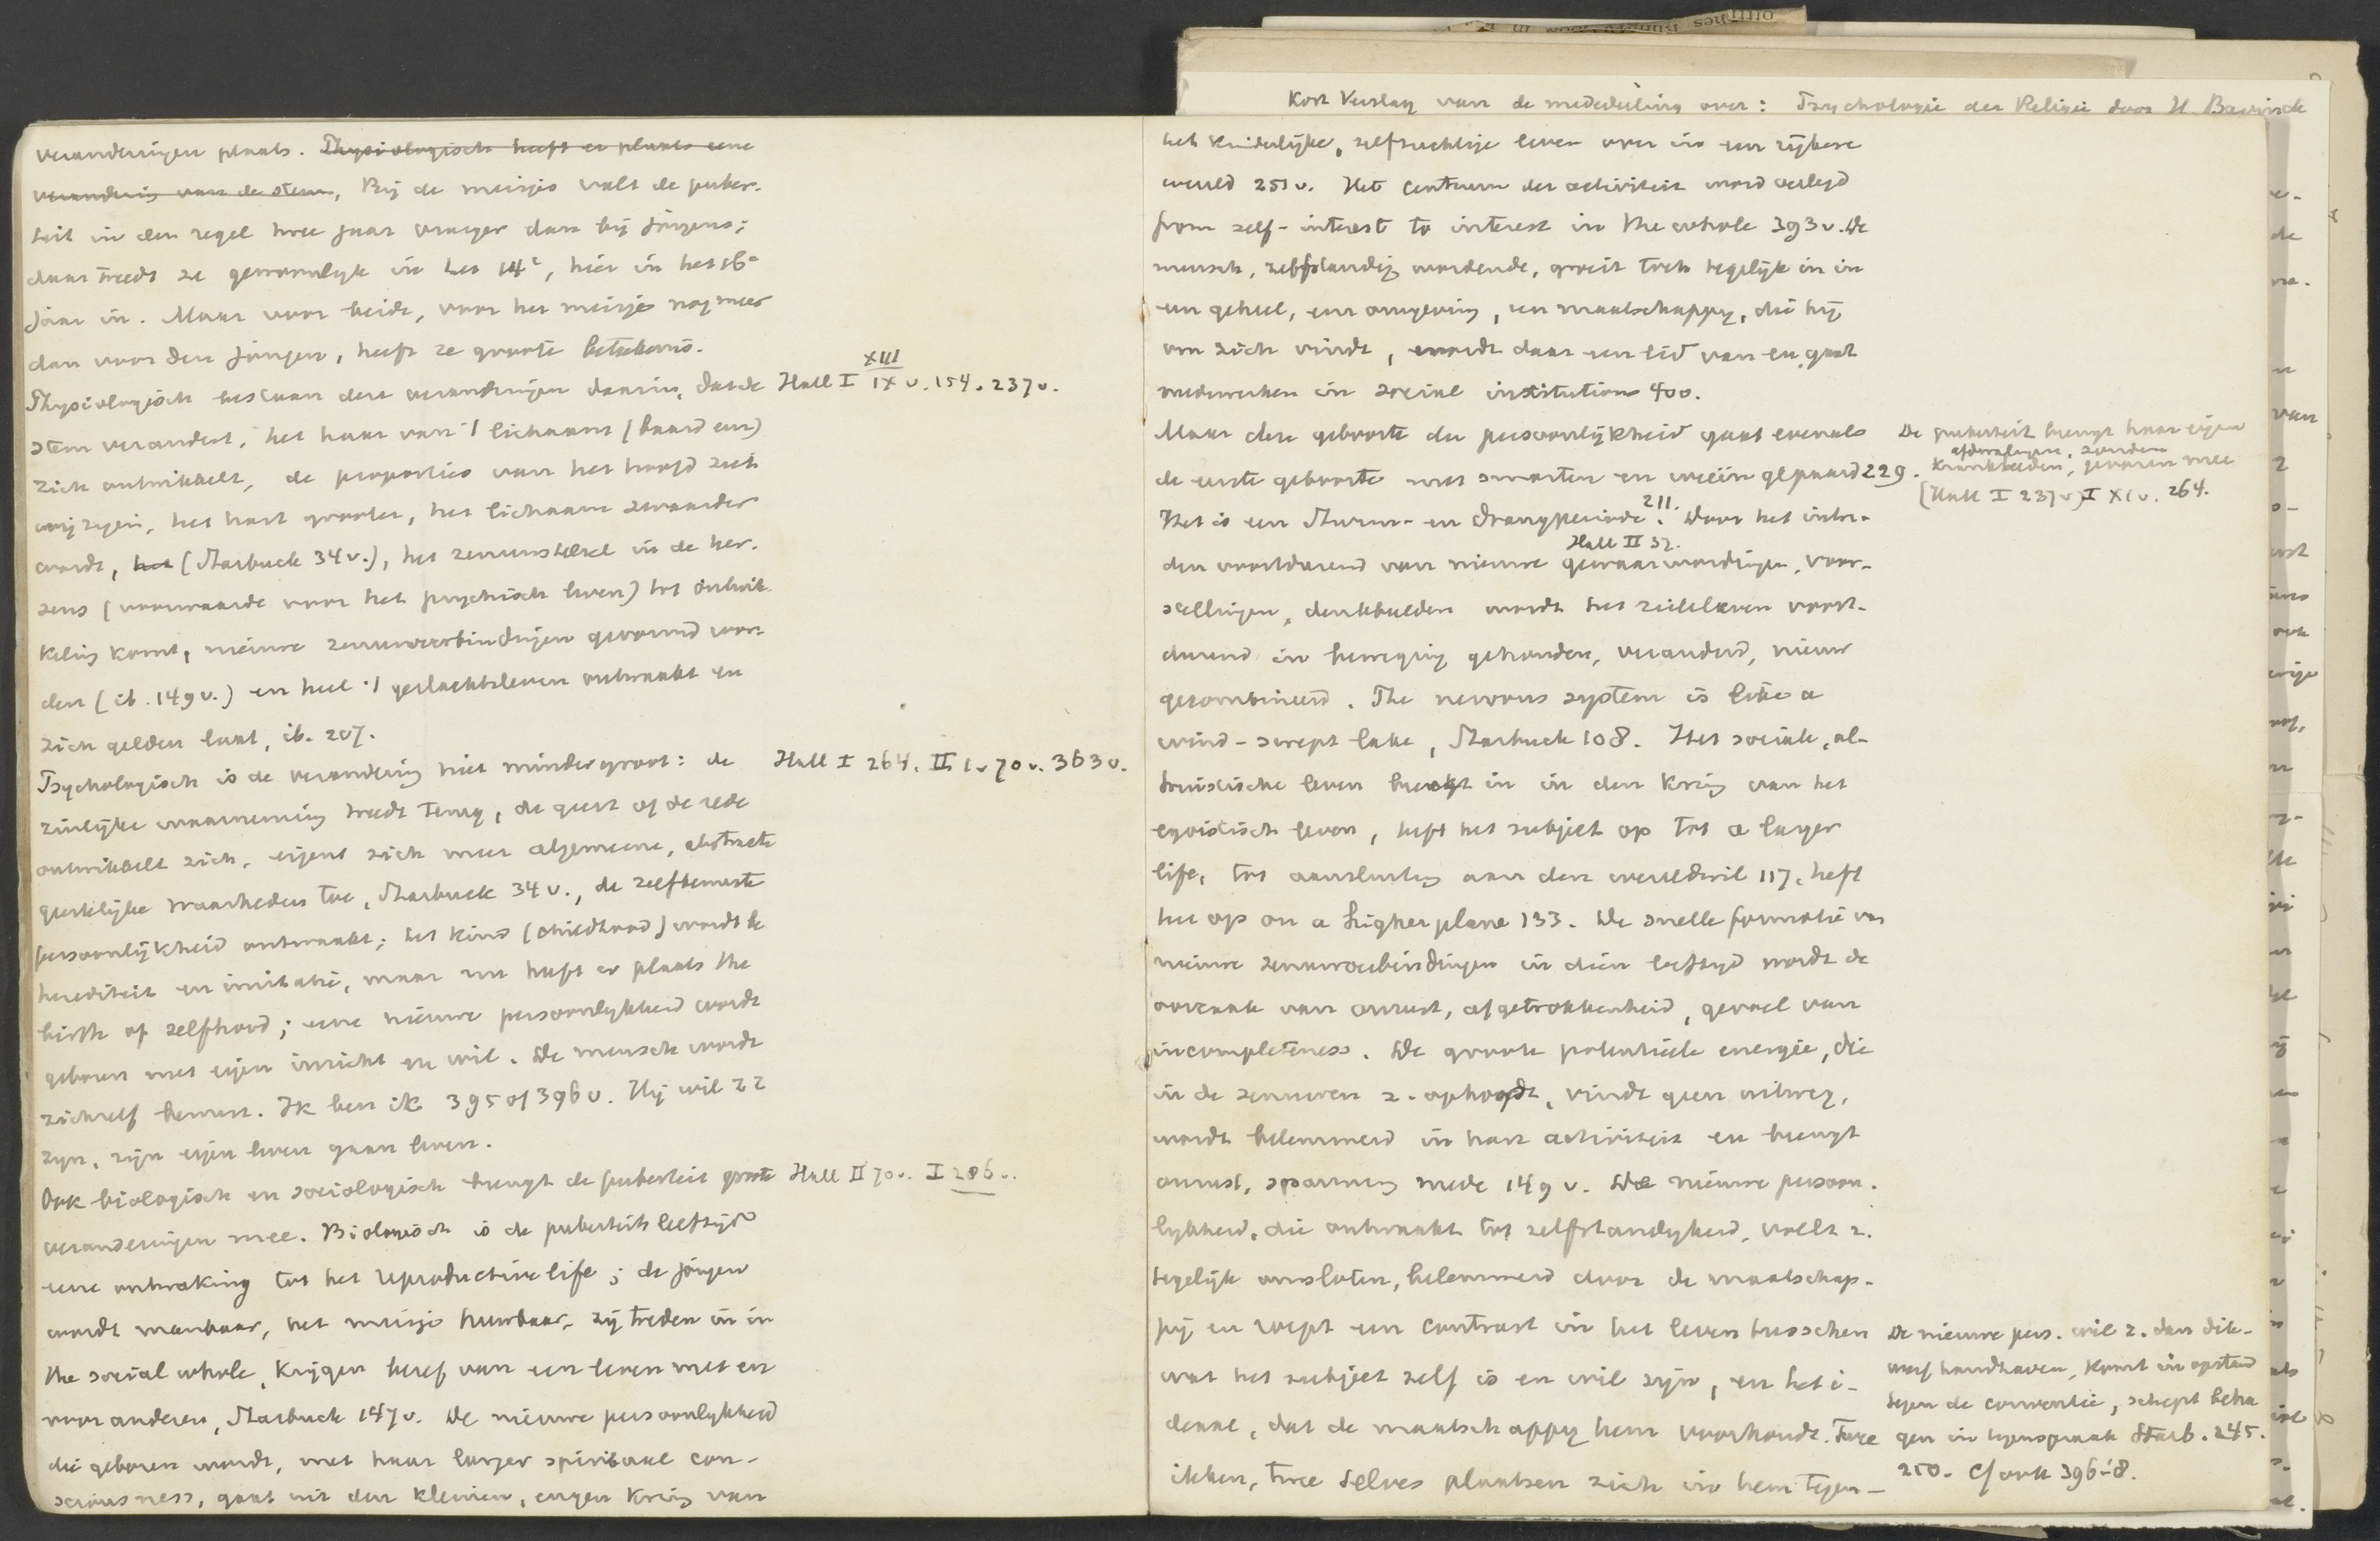 Kort Verslag van de mededeeling over: Psychologie der Religie door H. Bavinck
veranderingen plaats. Physiologisch heeft er plaats eene
verandering van de stem, Bij de meisjes valt de puber-
teit in den regel twee jaar vroeger dan bij jongens;
daar treedt ze gewoonlijk in het 14e, hier in het 16e
jaar in. Maar voor beide, voor het meisje nog meer
dan voor den jongen, heeft ze groote beteekenis.
Physiologisch bestaan deze veranderingen daarin, dat de
Hall I XIII IX v. 154. 237 v.
stem verandert, het haar van 't lichaam (baard enz)
zich ontwikkelt, de proporties van het hoofd zich
wijzigen, het hart grooter, het lichaam zwaarder
wordt, het (Starbuck 34 v.), het zenuwstelsel in de her-
sens (voorwaarde voor het psychisch leven) tot ontwik-
keling komt, nieuwe zenuwverbindingen gevormd wor-
den (ib. 149 v.) en heel 't geslachtsleven ontwaakt en
zich gelden laat, ib. 207.
Psychologisch is de verandering niet minder groot: de
Hall I 264. II 1 v 70 v. 363 v.
zinlijke waarneming treedt terug, de geest of de rede
ontwikkelt zich, eigent zich meer algemeene, abstracte
geestelijke waarheden toe, Starbuck 34 v., de zelfbewuste
persoonlijkheid ontwaakt; het kind (childhood) wordt
herediteit en imitatie, maar nu heeft er plaats the
birth of selfhood; eene nieuwe persoonlijkheid wordt
geboren met eigen inzicht en wil. De mensch wordt
zichzelf bewust. Ik ben ik 395 of 396 v. Hij wil zz
zijn, zijn eigen leven gaan leven.
Ook biologisch en sociologisch brengt de puberteit groote
Hall II 70 v. I 286 v.
veranderingen mee. Biologisch is de puberteits leeftijd
eene ontwaking tot het reproductive life; de jongen
wordt manbaar, het meisje huwbaar, zij treden in in
the social whole, krijgen besef van een leven met en
voor anderen, Starbuck 147 v. De nieuwe persoonlijkheid
die geboren wordt, met haar larger spiritual con-
sciousness, gaat uit den kleinen, engen kring van
het kinderlijke, zelfzuchtige leven over in een rijkere
wereld 251 v. Het centrum der activiteit word verlegd
from self-interest to interest in the whole 393 v. De
mensch, zelfstandig wordende, groeit toch tegelijk in in
een geheel, een omgeving, een maatschappij, die hij
om zich vindt, wordt daar een lid van en gaat
medewerken in social institutions 400.
Maar deze geboorte der persoonlijkheid gaat evenals
de eerste geboorte met smarten en weeën gepaard 229.
De puberteit brengt haar eigen
afdwalingen, zonden
krankheden, gevaren mee
(Hall I 237 v) I XI v. 264.
Het is een Sturm- en Drangperiode 211. Door het intre-
Hall II 32.
den voortdurend van nieuwe gewaarwordingen, voor-
stellingen, denkbeelden wordt het zieleleven voort-
durend in beweging gehouden, veranderd, nieuw
gecombineerd. The nervous system is like a
wind-swept lake, Starbuck 108. Het sociale, al-
truistische leven breekt in in den kring van het
egoistisch leven, heft het subject op tot a larger
life, tot aansluiting aan den wereldwil 117, heft
het op on a higher plane 133. De snelle formatie van
nieuwe zenuwverbindingen in dien leeftijd wordt de
oorzaak van onrust, afgetrokkenheid, gevoel van
incompleteness. De groote potentieele energie, die
in de zenuwen z. ophoopt, vindt geen uitweg,
wordt belemmerd in haar activiteit en brengt
onrust, spanning mede 149 v. De nieuwe persoon-
lijkheid, die ontwaakt tot zelfstandigheid, voelt z.
tegelijk omsloten, belemmerd door de maatschap-
pij en roept een contrast in het leven tusschen
wat het subject zelf is en wil zijn, en het i-
deaal, dat de maatschappij hem voorhoudt. Twee
ikken, twee selves plaatsen zich in hem tegen-
De nieuwe pers. wil z. dan dik-
werf handhaven, komt in opstand
tegen de conventie, schept beha-
gen in tegenspraak Starb. 245.
250. Cf ook 396-8.